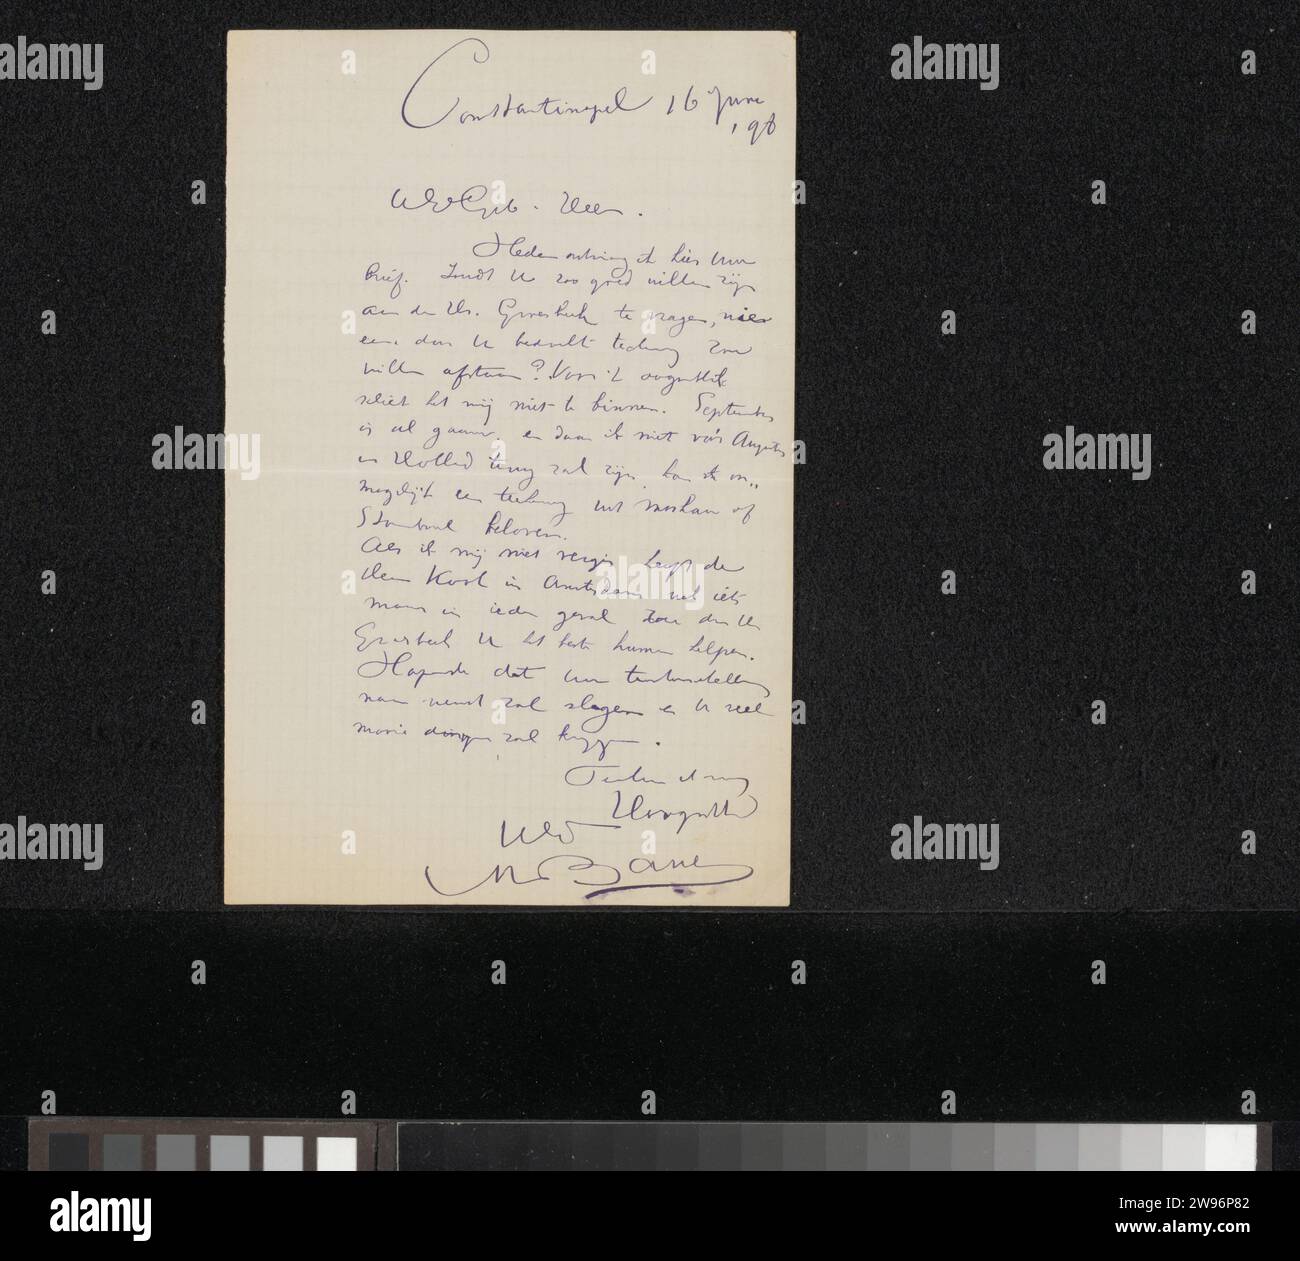 Constantinopel 16 June
'98
WelGeb. Heer.
Heden ontving ik hier Uw
brief. Zoudt U zoo goed willen zijn
aan den Hr. Groesbeek te vragen,
een door U bedoelde teekening zou
willen afstaan? Voor 't oogenblik
schiet het mij niet te binnen. September
is al gauw, en daar ik niet vóór Augustus
in Holland terug zal zijn, kan ik on„
mogelijk een teekening uit of
Stamboul beloven.
Als ik mij niet vergis heeft de
Heer Kook in Amsterdam wel iets
maar in ieder geval zou den Hr
Groesbeek U het beste kunnen helpen.
Hopende dat Uw tentoonstelling
naar wensch zal slagen en U veel
mooie dingen zal krijgen.
Teeken ik mij
Hoogachtend
M Bauer
alamy
a
2W96P82
Image ID: 2W96P82
www.alamy.com